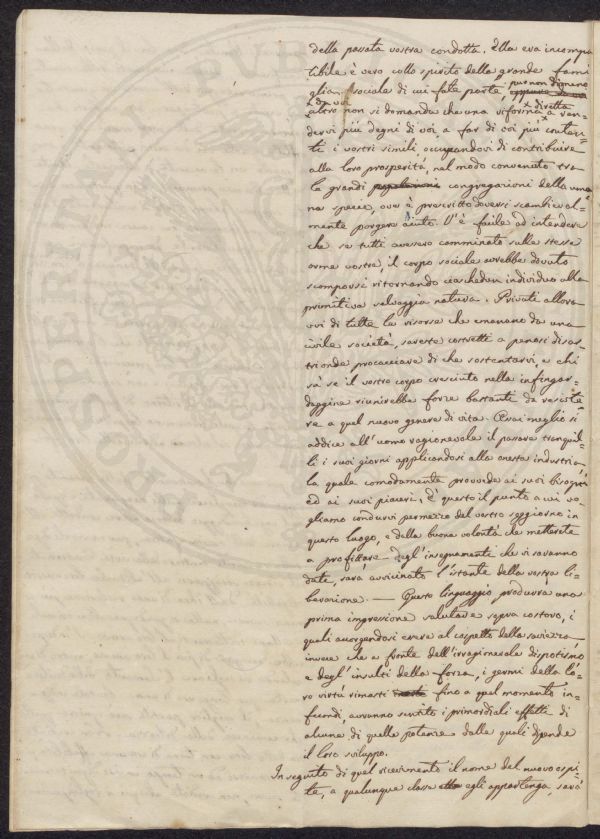 della passata vostra condotta. Ella era incompa
tibile è vero collo spirito della grande fami
glia sociale di cui fate parte, pur non dimeno
da voi
altro non si domanda che una riforma diretta a ren-
dervi più degni di voi, a far di voi più
ti i vostri simili occupandovi di contribuire
alla loro prosperità, nel modo convenuto tra
le grandi congregazioni della uma
na specie, over è prescritto doversi scambieval-
mente porgere aiuto. V'è facile ad intendere
che se tutti avessero camminato sulle stesse
orme vostre, il corpo sociale avrebbe dovuto
scomporsi ritornando ciaschedun individuo alla
primitiva selvaggia natura. Privati allora
voi di tutte le risorse che emanano da una
civile società, sareste costretti a penosi disas-
tri onde procacciare di che sostentarvi, e chi
sà se il vostro corpo cresciuto nella infingar-
daggine riunirebbe forze bastanti da resiste
re a quel nuovo genere di vita. Assai meglio si
addice all'uomo ragionevole il passare tranquil-
li i suoi giorni applicandosi alla onesta industria
la quale comodamente provvede ai suoi bisogni
ed ai suoi piaceri. È questo il punto a cui vo
gliamo condurvi per mezzo del vostro soggiorno in
questo luogo, e dalla buona volontà che metterete
a profittare degl'insegnamenti che vi saranno
date, sarà avvicinato l'istante della vostra li-
berazione. — Questo linguaggio produrrà una
prima impressione salutare sopra costoro, i
quali accorgendosi essere al cospetto della saviezza
invece che a fronte dell'irragionevole dispotismo
e degl'insulti della forza, i germi della lo-
ro virtù rimasti fino a quel momento in-
fecondi, avranno sentito i primordiali effetti di
alcune di quelle potenze dalle quali dipende
il loro sviluppo.
In seguito di quel ricevimento il nome del nuovo ospi-
te, a qualunque classe egli appartenga, sarà